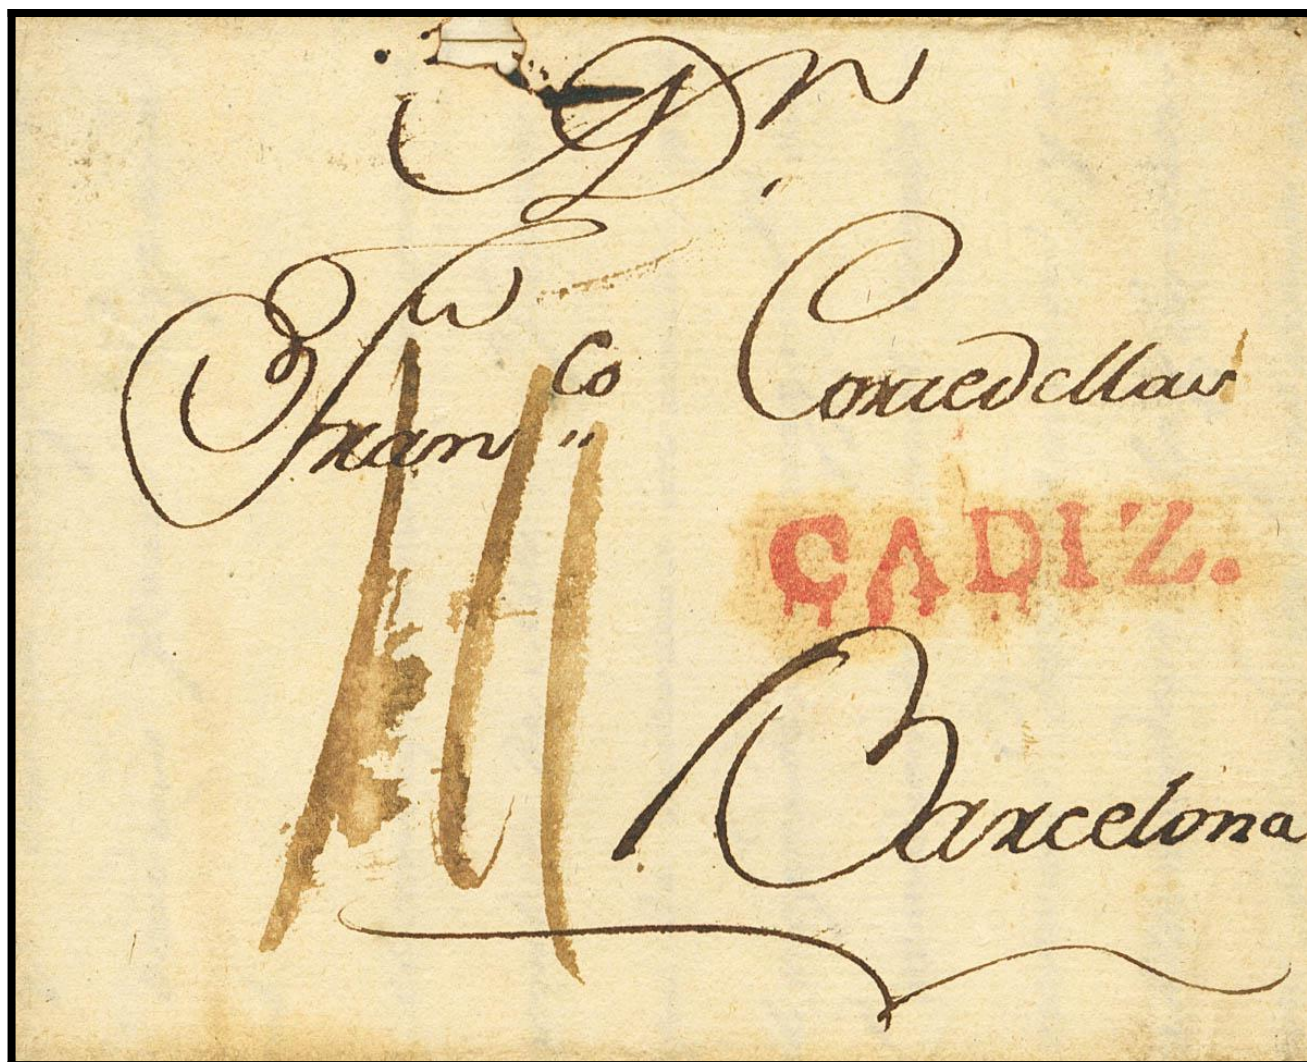 Dn
Franco Cortedellas
CADIZ.
Barcelona